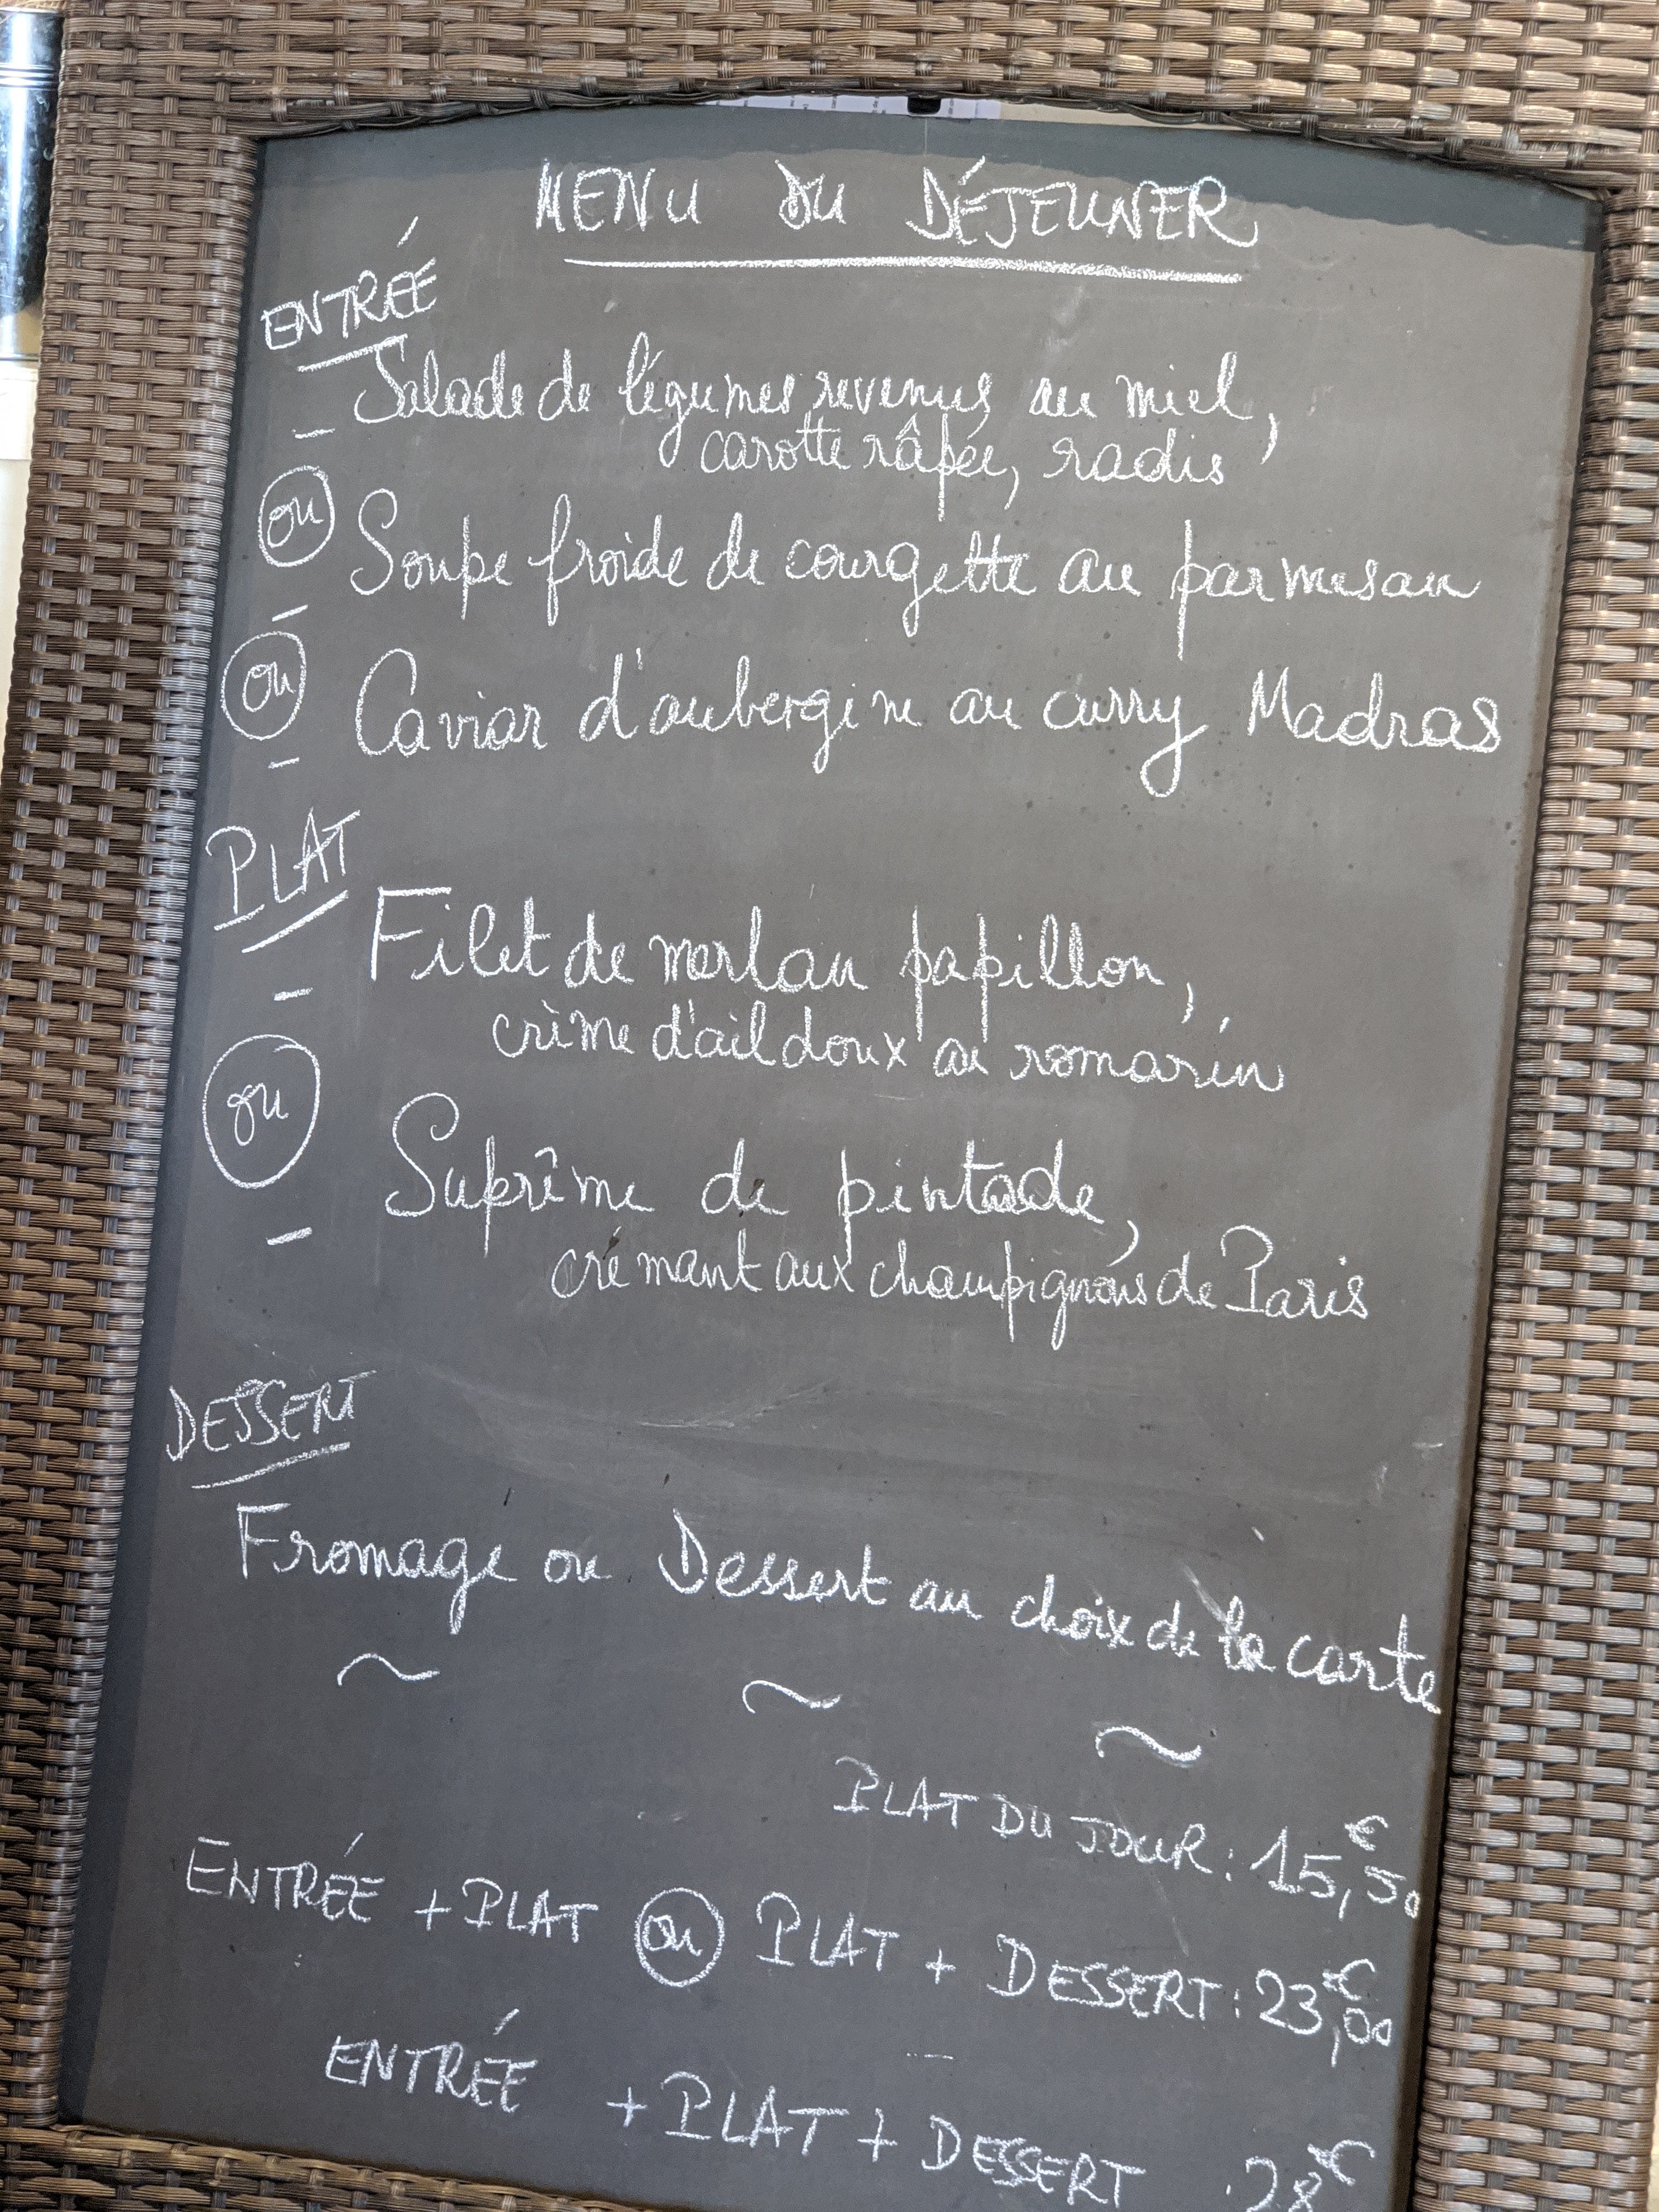 MENU DU DÉJEUNER
ENTRÉE
Salade de légumes revenus au miel,
carotte râpée, radis
ou
Soupe froide de courgette au parmesan
ou
Caviar d'aubergine au curry Madras
PLAT
Filet de merlan papillon,
crème d'ail doux au romarin
ou
Suprême de pintade,
crémant aux champignons de Paris
DESSERT
Fromage ou Dessert au choix de la carte
PLAT DU JOUR : 15,50 €
ENTRÉE + PLAT ou PLAT + DESSERT : 23,00 €
ENTRÉE + PLAT + DESSERT : 28 €